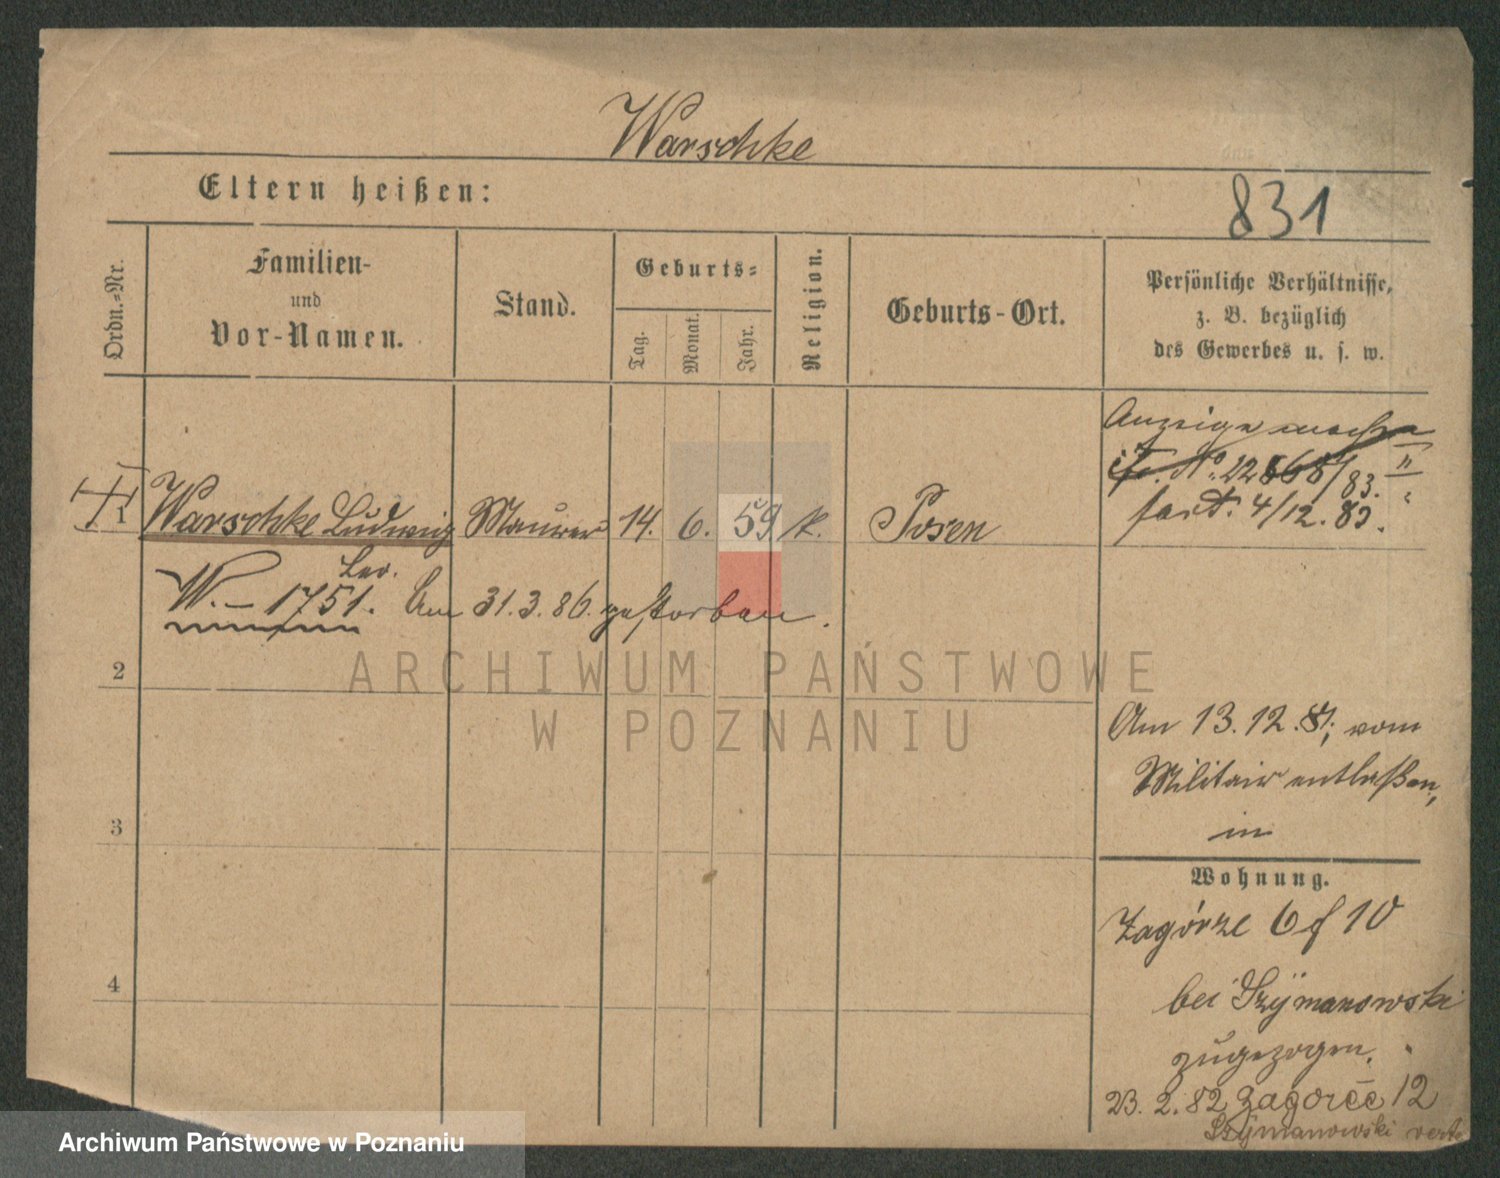 Warschke
Eltern heißen:
831
Ordn.-Nr.
Familien-
und
Vor-Namen.
Stand.
Geburts-
Tag.
Monat.
Jahr.
Religion.
Geburts-Ort.
Persönliche Verhältnisse,
z. B. bezüglich
des Gewerbes u. s. w.
Anzeige machen
No. 22868/83. II
fort. 4/12. 83.
1 Warschke Ludwig Maurer 14. 6. 59 k. Posen
W. – 1751. Am 31.3.86. gestorben.
2
ARCHIWUM PAŃSTWOWE
W POZNANIU
Am 13.12.81; vom
Militair entlaßen,
in
3
Wohnung.
Zagórze 6 f 10
4
bei Szÿmanowski
zugezogen.
23. 2. 82 Zagorze 12
Szÿmanowski verte
Archiwum Państwowe w Poznaniu